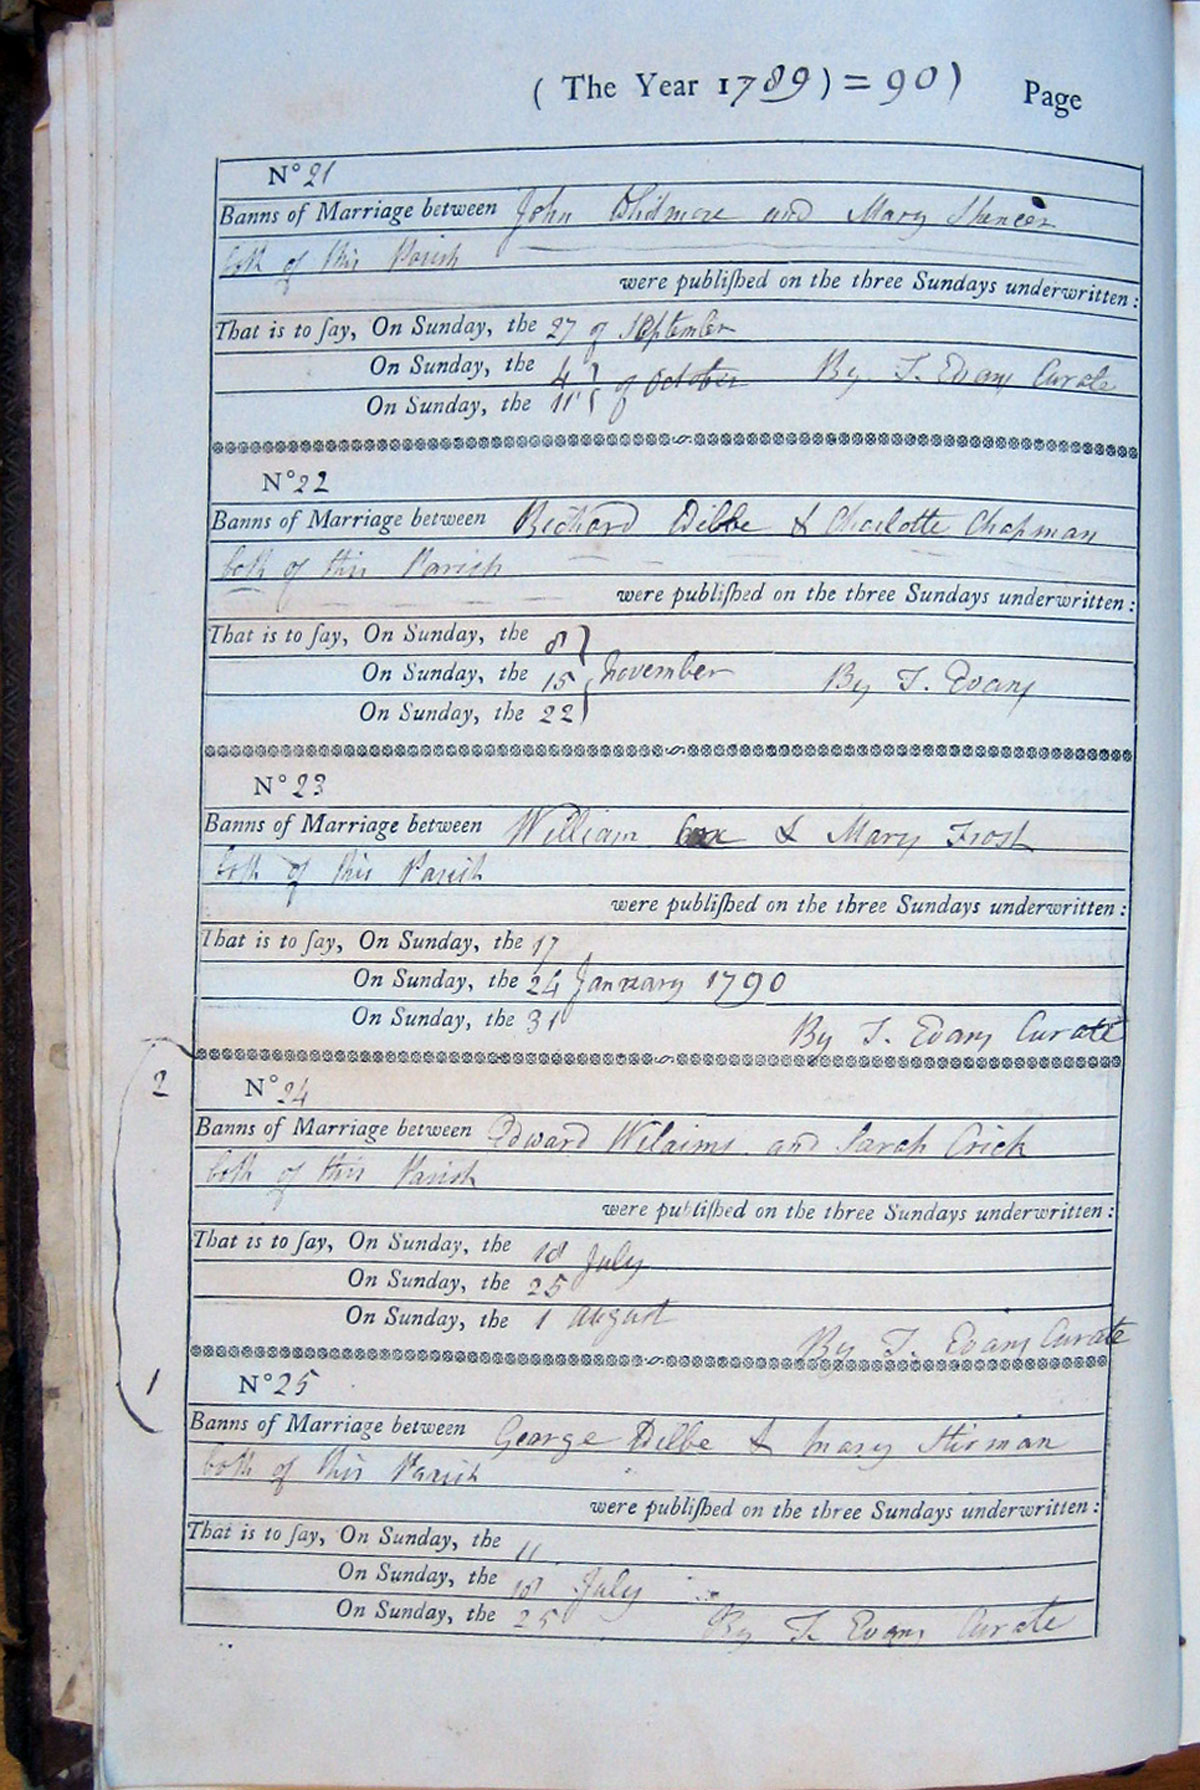 ( The Year 1789 ) = 90 ) Page
N° 21
Banns of Marriage between John Whitmore and Mary Spencer
both of this Parish
were publiſhed on the three Sundays underwritten :
That is to ſay, On Sunday, the 27 of September
On Sunday, the 4 } of October By T. Evans Curate
On Sunday, the 11
N° 22
Banns of Marriage between Richard Dilbe & Charlotte Chapman
both of this Parish
were publiſhed on the three Sundays underwritten :
That is to ſay, On Sunday, the 8
On Sunday, the 15 } November By T. Evans
On Sunday, the 22
N° 23
Banns of Marriage between William Cox & Mary Frost
both of this Parish
were publiſhed on the three Sundays underwritten :
That is to ſay, On Sunday, the 17
On Sunday, the 24 January 1790
On Sunday, the 31 By T. Evans Curate
2 N° 24
Banns of Marriage between Edward Wilaims and Sarah Crick
both of this Parish
were publiſhed on the three Sundays underwritten :
That is to ſay, On Sunday, the 18 July
On Sunday, the 25
On Sunday, the 1 August
By T. Evans Curate
1 N° 25
Banns of Marriage between George Dilbe & Mary Stirman
both of this Parish
were publiſhed on the three Sundays underwritten :
That is to ſay, On Sunday, the 11
On Sunday, the 18 July
On Sunday, the 25 By T. Evans Curate